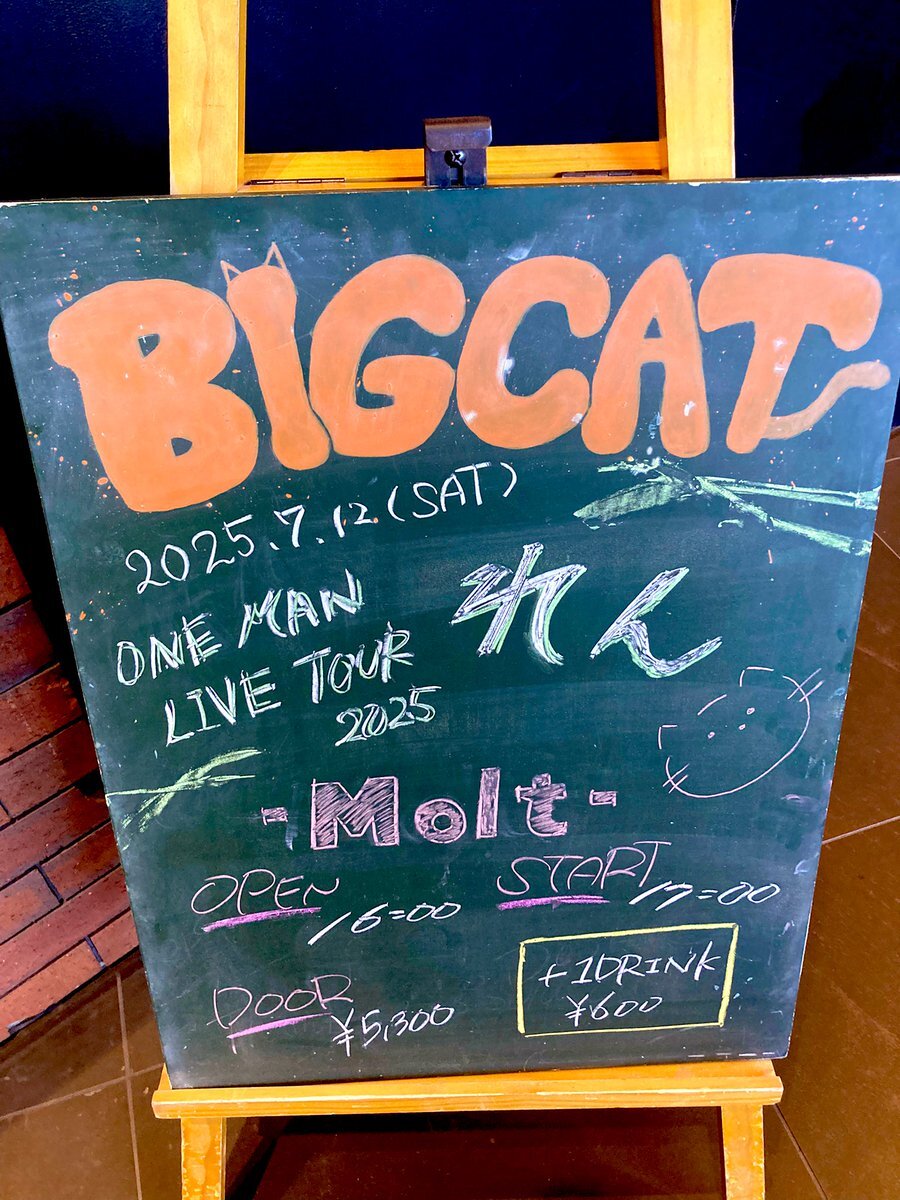 BIGCAT
2025.7.12.(SAT)
ONE MAN
LIVE TOUR
2025
れん
-Molt-
OPEN 16=00
START 17=00
DOOR ¥5,300
+1DRINK
¥600